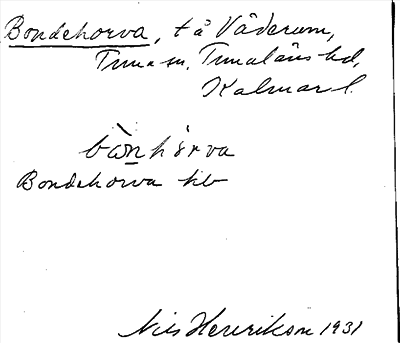 Bondehorva, tå Våderum,
Tuna sn, Tunaläns hd,
Kalmar l.
bòn hòrva
Bondehorva hb
Nils Henrikson 1931